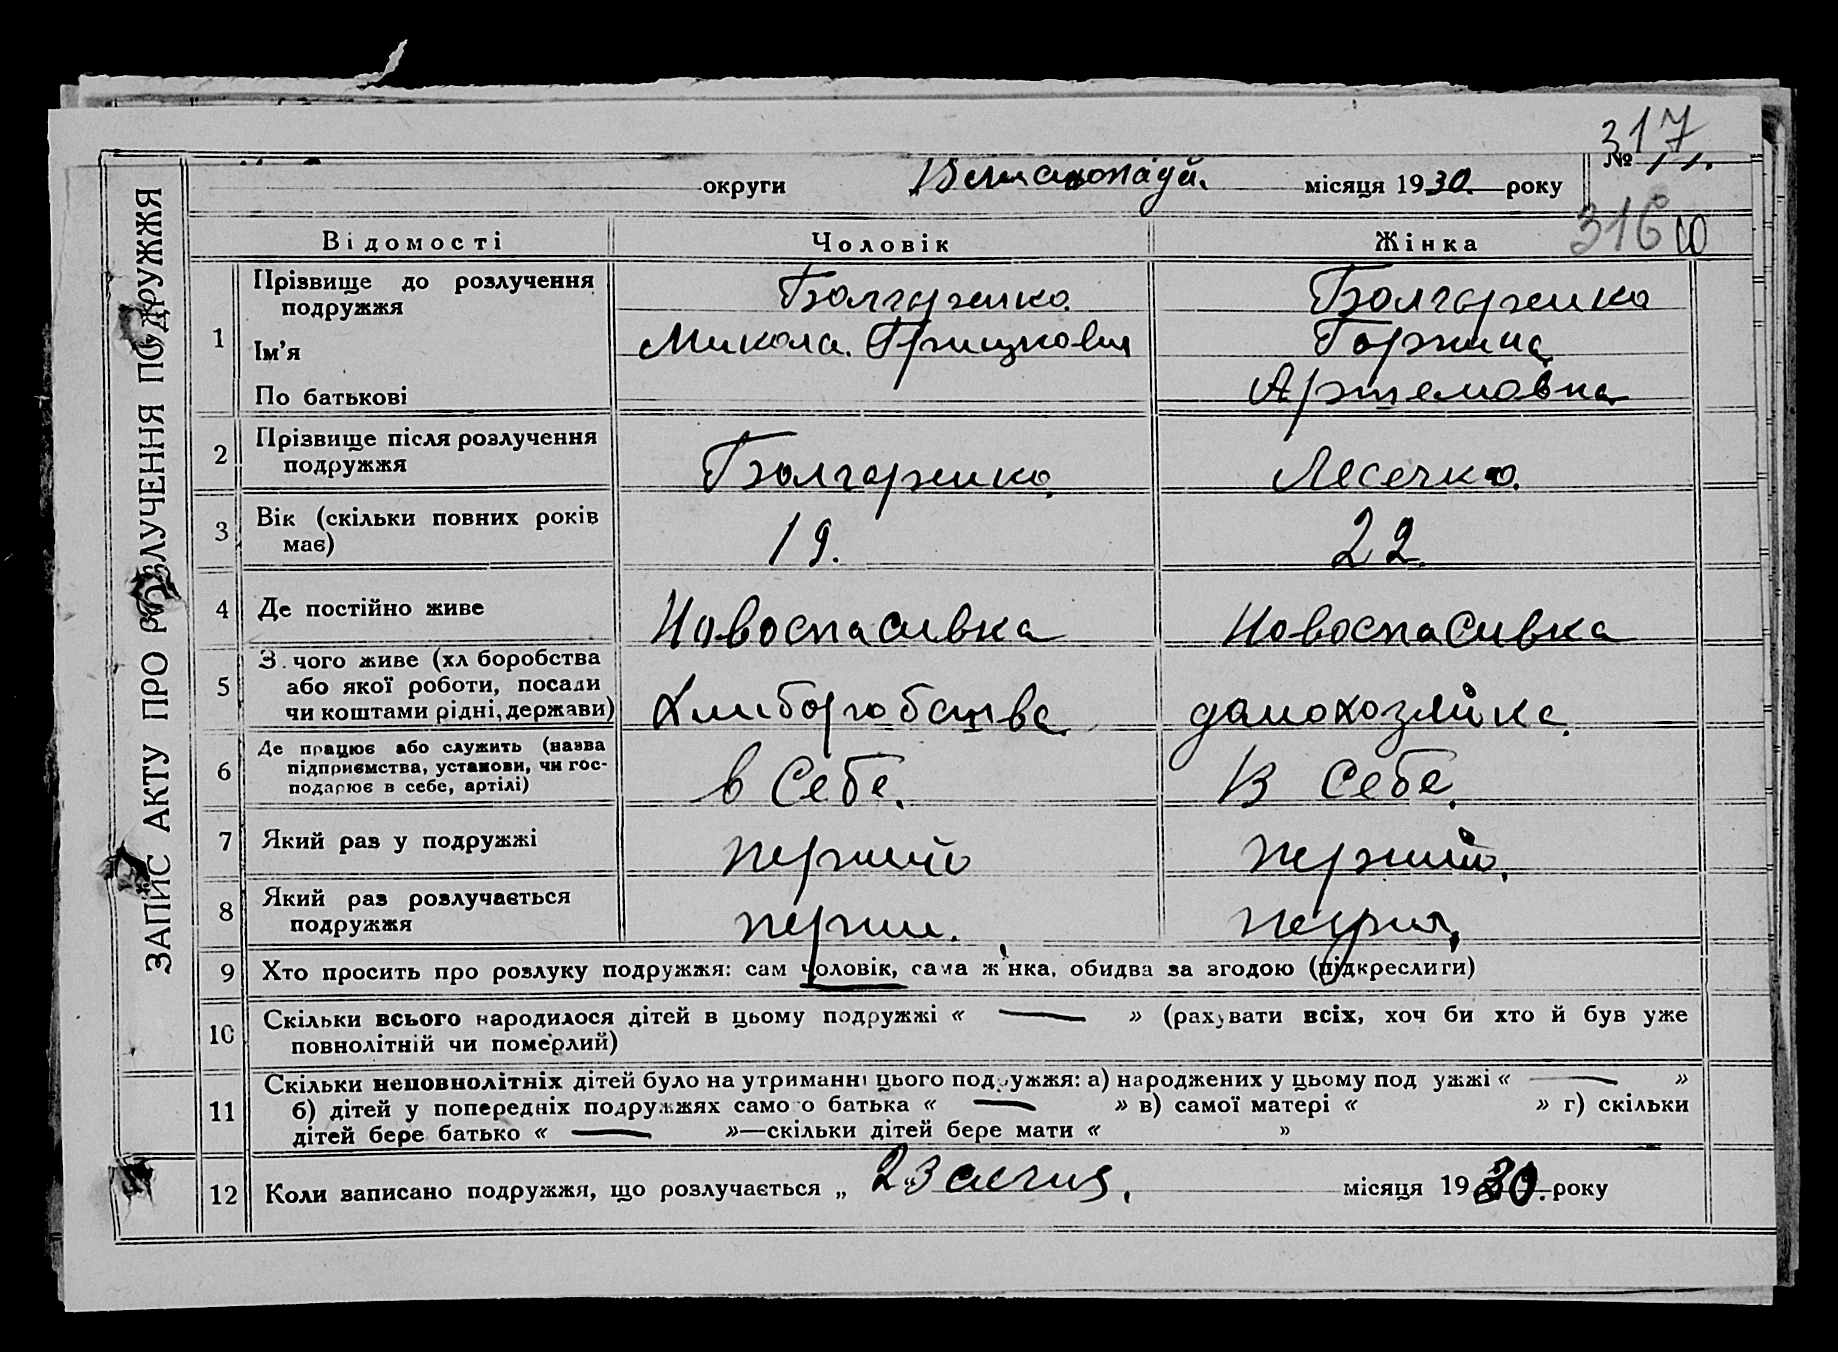 317
№ 11.
округи 13 листопада. місяця 1930. року
316
ЗАПИС АКТУ ПРО РОЗЛУЧЕННЯ ПОДРУЖЖЯ
Відомості Чоловік Жінка
1 Прізвище до розлучення подружжя Болгаренко. Болгаренко
Ім'я Микола. Грицкович
По батькові Артемовна
2 Прізвище після розлучення подружжя Болгаренко. Лесечко.
3 Вік (скільки повних років має) 19. 22.
4 Де постійно живе Новоспасивка Новоспасивка
5 З чого живе (хл боробства або якої роботи, посади чи коштами рідні, держави) Хлиборобства домохозяйка.
6 Де працює або служить (назва підприємства, установи, чи господарює в себе, артілі) в себе. В себе.
7 Який раз у подружжі перший перший.
8 Який раз розлучається подружжя перши.
9 Хто просить про розлуку подружжя: сам чоловік, сама жінка, обидва за згодою (підкреслити)
10 Скільки всього народилося дітей в цьому подружжі « — » (рахувати всіх, хоч би хто й був уже
повнолітній чи померлий)
11 Скільки неповнолітніх дітей було на утриманні цього подружжя: а) народжених у цьому под ужжі « — »
б) дітей у попередніх подружжях само о батька « — » в) самої матері « » г) скільки
дітей бере батько « — »—скільки дітей бере мати « »
12 Коли записано подружжя, що розлучається „ 23 сичня, місяця 1930. року